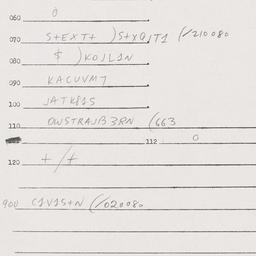 060 0
070 S+EXT+ )S+XQJT1 (/210080
080 $ )KOJL1N
090 KACUVM7
100 JATK815
110 OWSTRAJB3RN (663
112 0
120 +/+
900 C1V15+N (/020080